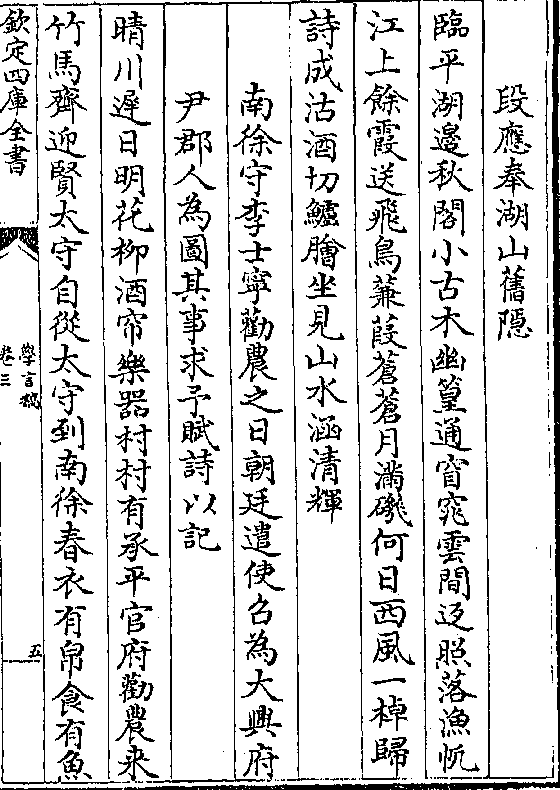 段應奉湖山舊隱
臨平湖邉秋閣小古木幽篁通窅窕雲間返照落漁帆
江上餘霞送飛鳥蒹葭蒼蒼月滿磯何日西風一棹歸
詩成沽酒切鱸膾坐見山水涵清輝
南徐守李士寧勸農之日朝廷遣使召為大興府
尹郡人為圖其事求予賦詩以記
晴川遲日明花柳酒帘樂器村村有承平官府勸農来
竹馬齊迎賢太守自從太守到南徐春衣有帛食有魚
欽定四庫全書
學言稿
卷三
五